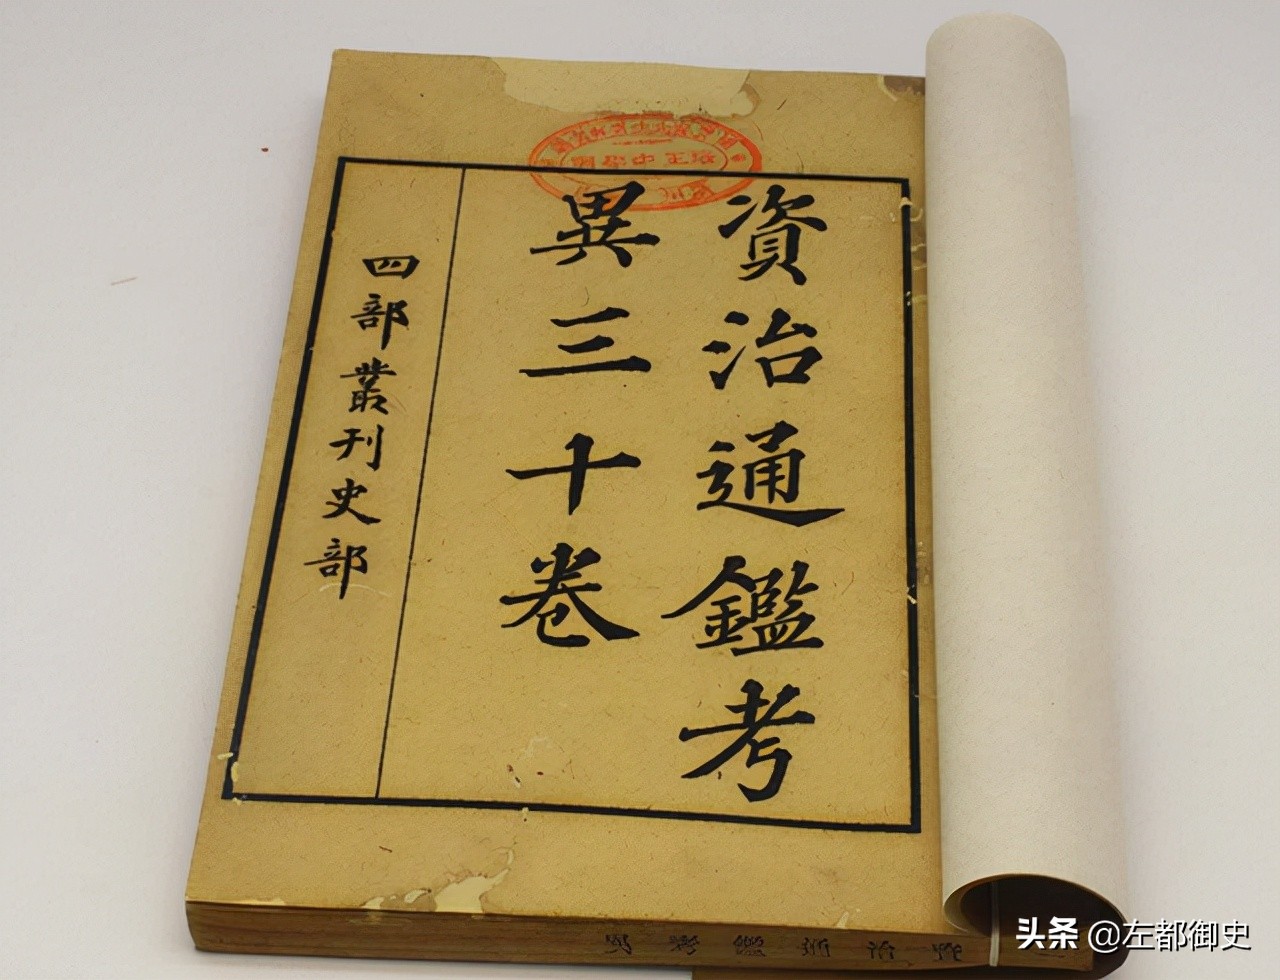 資治通鑑考
異三十卷
四部叢刊史部
头条 @左都御史